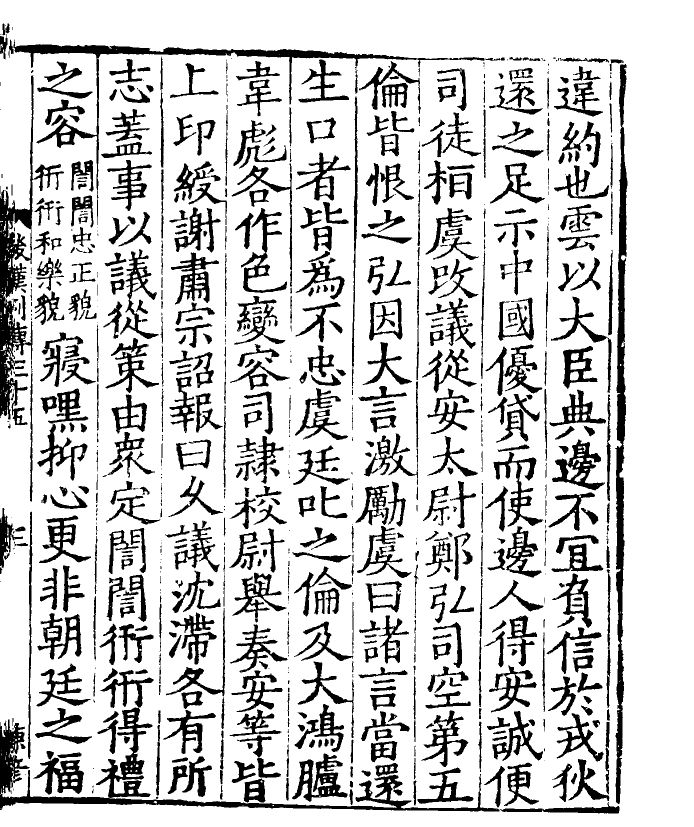 違約也雲以大臣典邊不宜負信於戎狄
還之足示中國優貸而使邊人得安誠便
司徒桓虞攺議從安太尉鄭弘司空第五
倫皆恨之弘因大言激勵虞曰諸言當還
生口者皆爲不忠虞廷叱之倫及大鴻臚
韋彪各作色變容司隷校尉舉奏安等皆
上印綬謝肅宗詔報曰乆議沈滯各有所
志蓋事以議從策由衆定誾誾衎衎得禮
之容
誾誾忠正貌
衎衎和樂貌
寢嘿抑心更非朝廷之福
後漢列傳三十五